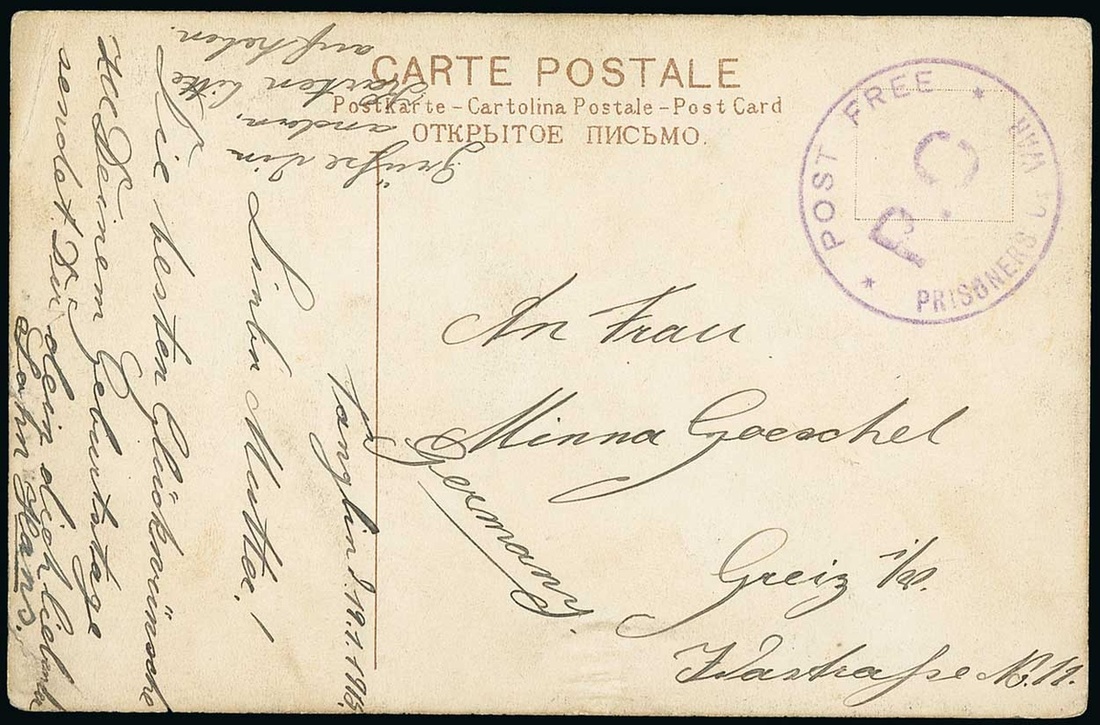 CARTE POSTALE
Postkarte - Cartolina Postale - Post Card
ОТКРЫТОЕ ПИСЬМО.
POST FREE
P.C
PRISONERS OF WAR
An Frau
Minna Goeschel
Greiz i/V.
No. 11.
Germany.
Tanglin d. 19.1.1915.
Liebe Mutter!
Die besten Glückwünsche
zu Deinem Geburtstage
sendet Dir dein dich liebender
Sohn Hans.
Grüsse die
andern,
Karten bitte
aufheben.